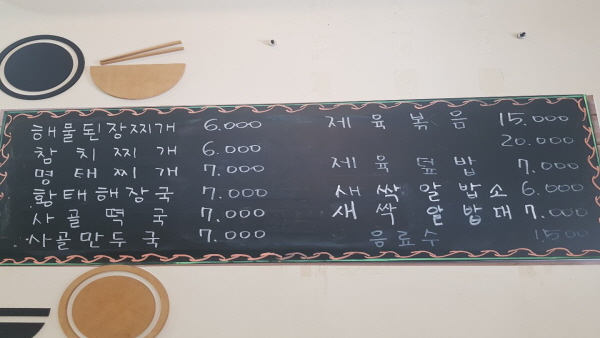 해물된장찌개 6.000
참치찌개 6.000
명태찌개 7.000
황태해장국 7.000
사골떡국 7.000
사골만두국 7.000
제육볶음 15.000
20.000
제육덮밥 7.000
새싹알밥소 6.000
새싹알밥대 7.000
음료수 1.500